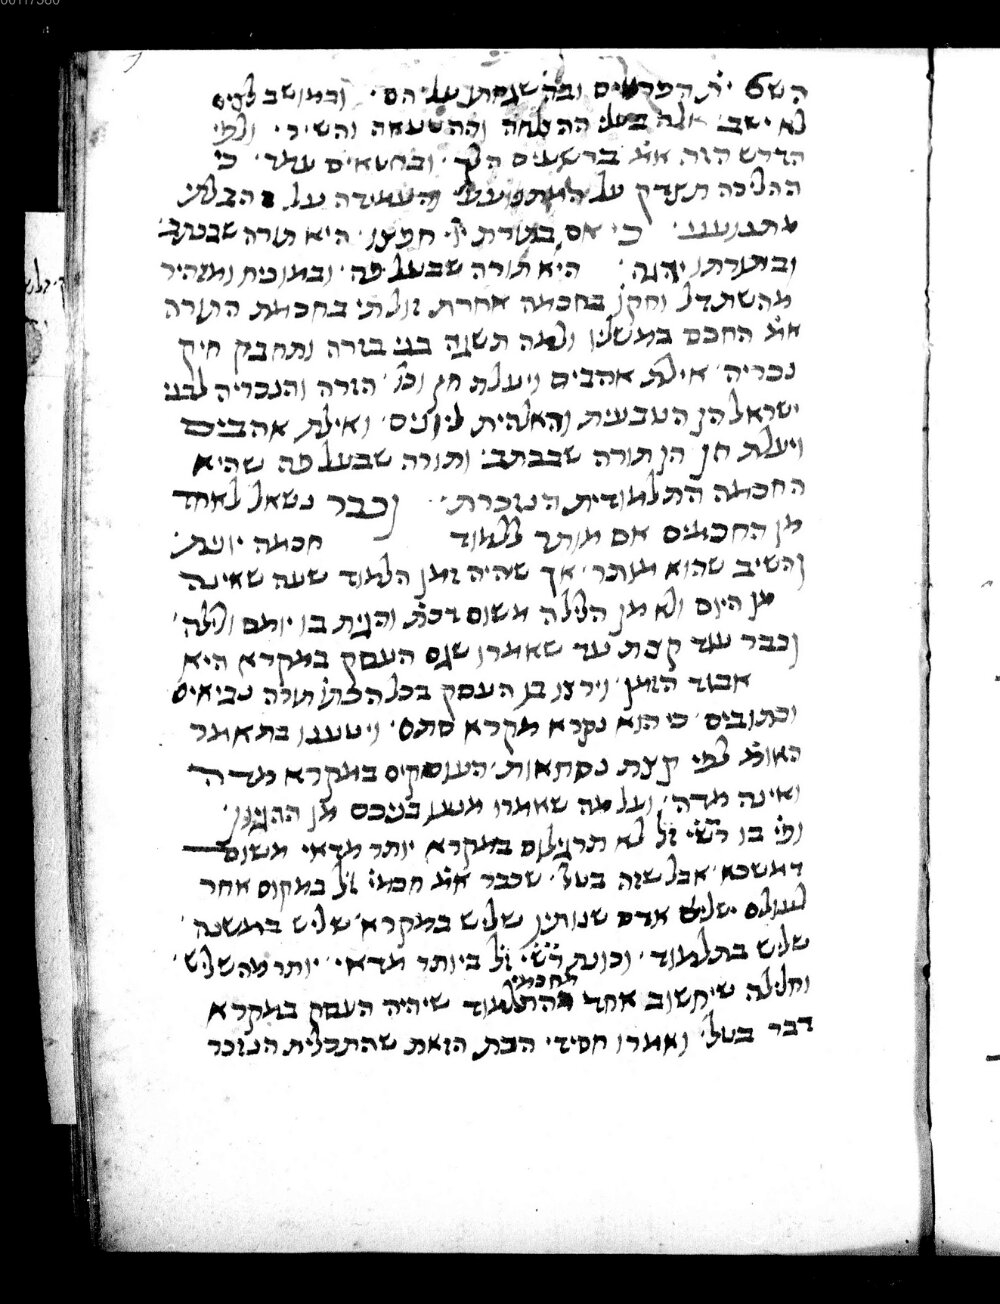 השם ית' הפרטיים ובהשגחתו עליהם' ובמושב לצים
לא ישב' אלה בעלי ההצלחה וההשעחה והשיר' ולפי
הדרש הזה אמ' ברשעים הלך' ובחטאים עמד' כי
ההליכה תצדק על המתפועעי' והעמידה על הבלתי
מתנועעי' כי אם בתורת יי' חפצו' היא תורה שבכתב'
ובתורתו יהגה' היא תורה שבעל פה' ובמוכיח ומזהיר
מהשתדל וחקר בחכמה אחרת זולתי בחכמת התורה
אמ' החכם במשליו ולמה תשגה בני בזרה ותחבק חיק
נכריה' אילת אהבים ויעלת חן וכו' הזרה והנכריה לבני
ישראל הן הטבעית והאלהית ליונים' ואילת אהבים
ויעלת חן הן תורה שבכתב' ותורה שבעל פה שהיא
החכמה התלמודית הנזכרת' וכבר נשאל לאחד
מן החכמים אם מותר ללמוד חכמה יונית'
והשיב שהוא מותר' אך שיהיה זמן הלמוד שעה שאינה
מן היום ולא מן הלילה משום דכת' והגית בו יומם ולילה'
וכבר עוד קצת עד שאמרו שגם העסק במקרא היא
אבוד הזמן' וירצו בו העסק בכל הכתו' תורה נביאים
וכתובים' כי הוא נקרא מקרא סתם' ויטענו במאמר
האומ' לפי קצת נסחאות' העוסקים במקרא מדה
ואינה מדה' ועל מה שאמרו מנעו בניכם מן ההגיון'
ופי' בו רש"י ז"ל לא תרגילום במקרא יותר מדאי משום
דמשכא' אבל שזה בטל' שכבר אמ' חכמי' ז"ל במקום אחר
לעולם ישליש אדם שנותיו שליש במקרא' שליש במשנה'
שליש בתלמוד' וכונת רש"י ז"ל ביותר מדאי' יותר מהשליש'
וחלילה שיחשוב אחד מחכמי התלמוד שיהיה העסק במקרא
דבר בטל' ואמרו חסידי הכת הזאת שהתכלית הנזכר